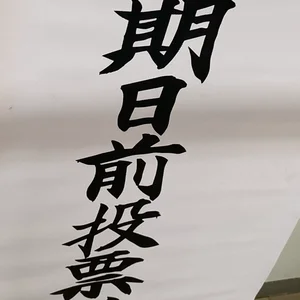 期日前投票